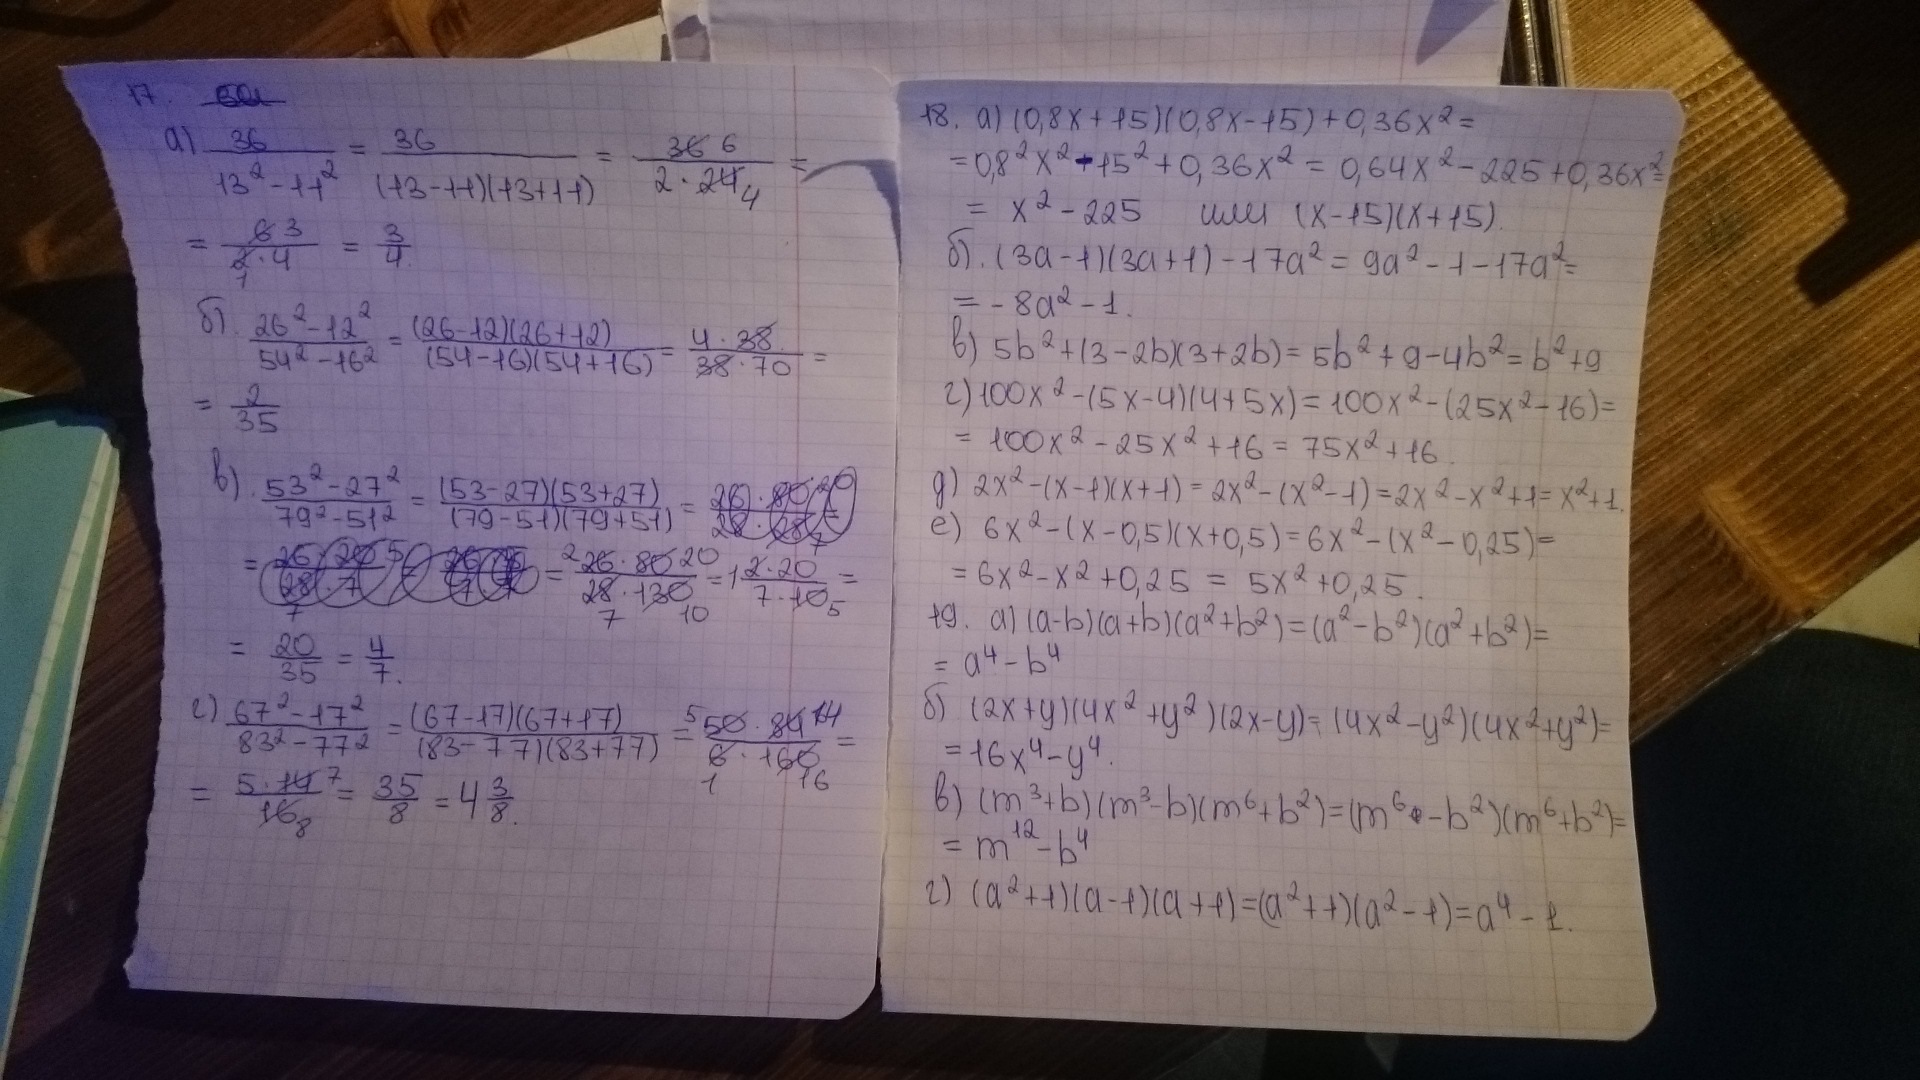 17.
а) 36/(13² - 11²) = 36/((13-11)(13+11)) = 36 6/(2 · 24 4) =
= 6 3/(2 1 · 4) = 3/4.
б). (26² - 12²)/(54² - 16²) = (26-12)(26+12)/((54-16)(54+16)) = 4 · 38/(38 · 70) =
= 2/35
в). (53² - 27²)/(79² - 51²) = (53-27)(53+27)/((79-51)(79+51)) =
= 2 26 · 80 20/(28 7 · 130 10) = 1 2 · 20/(7 · 10 5) =
= 20/35 = 4/7.
г) (67² - 17²)/(83² - 77²) = (67-17)(67+17)/((83-77)(83+77)) = 5 50 · 84 14/(6 1 · 160 16) =
= 5 · 14 7/(16 8) = 35/8 = 4 3/8.
18. а) (0,8x+15)(0,8x-15)+0,36x² =
= 0,8²x² - 15² + 0,36x² = 0,64x² - 225 + 0,36x² =
= x² - 225 или (x-15)(x+15).
б). (3a-1)(3a+1) - 17a² = 9a² - 1 - 17a² =
= -8a² - 1.
в) 5b² + (3-2b)(3+2b) = 5b² + 9 - 4b² = b² + 9
г) 100x² - (5x-4)(4+5x) = 100x² - (25x² - 16) =
= 100x² - 25x² + 16 = 75x² + 16.
д) 2x² - (x-1)(x+1) = 2x² - (x² - 1) = 2x² - x² + 1 = x² + 1.
е) 6x² - (x-0,5)(x+0,5) = 6x² - (x² - 0,25) =
= 6x² - x² + 0,25 = 5x² + 0,25.
19. а) (a-b)(a+b)(a²+b²) = (a²-b²)(a²+b²) =
= a⁴ - b⁴
б) (2x+y)(4x²+y²)(2x-y) = (4x²-y²)(4x²+y²) =
= 16x⁴ - y⁴.
в) (m³+b)(m³-b)(m⁶+b²) = (m⁶-b²)(m⁶+b²) =
= m¹² - b⁴
г) (a²+1)(a-1)(a+1) = (a²+1)(a²-1) = a⁴ - 1.